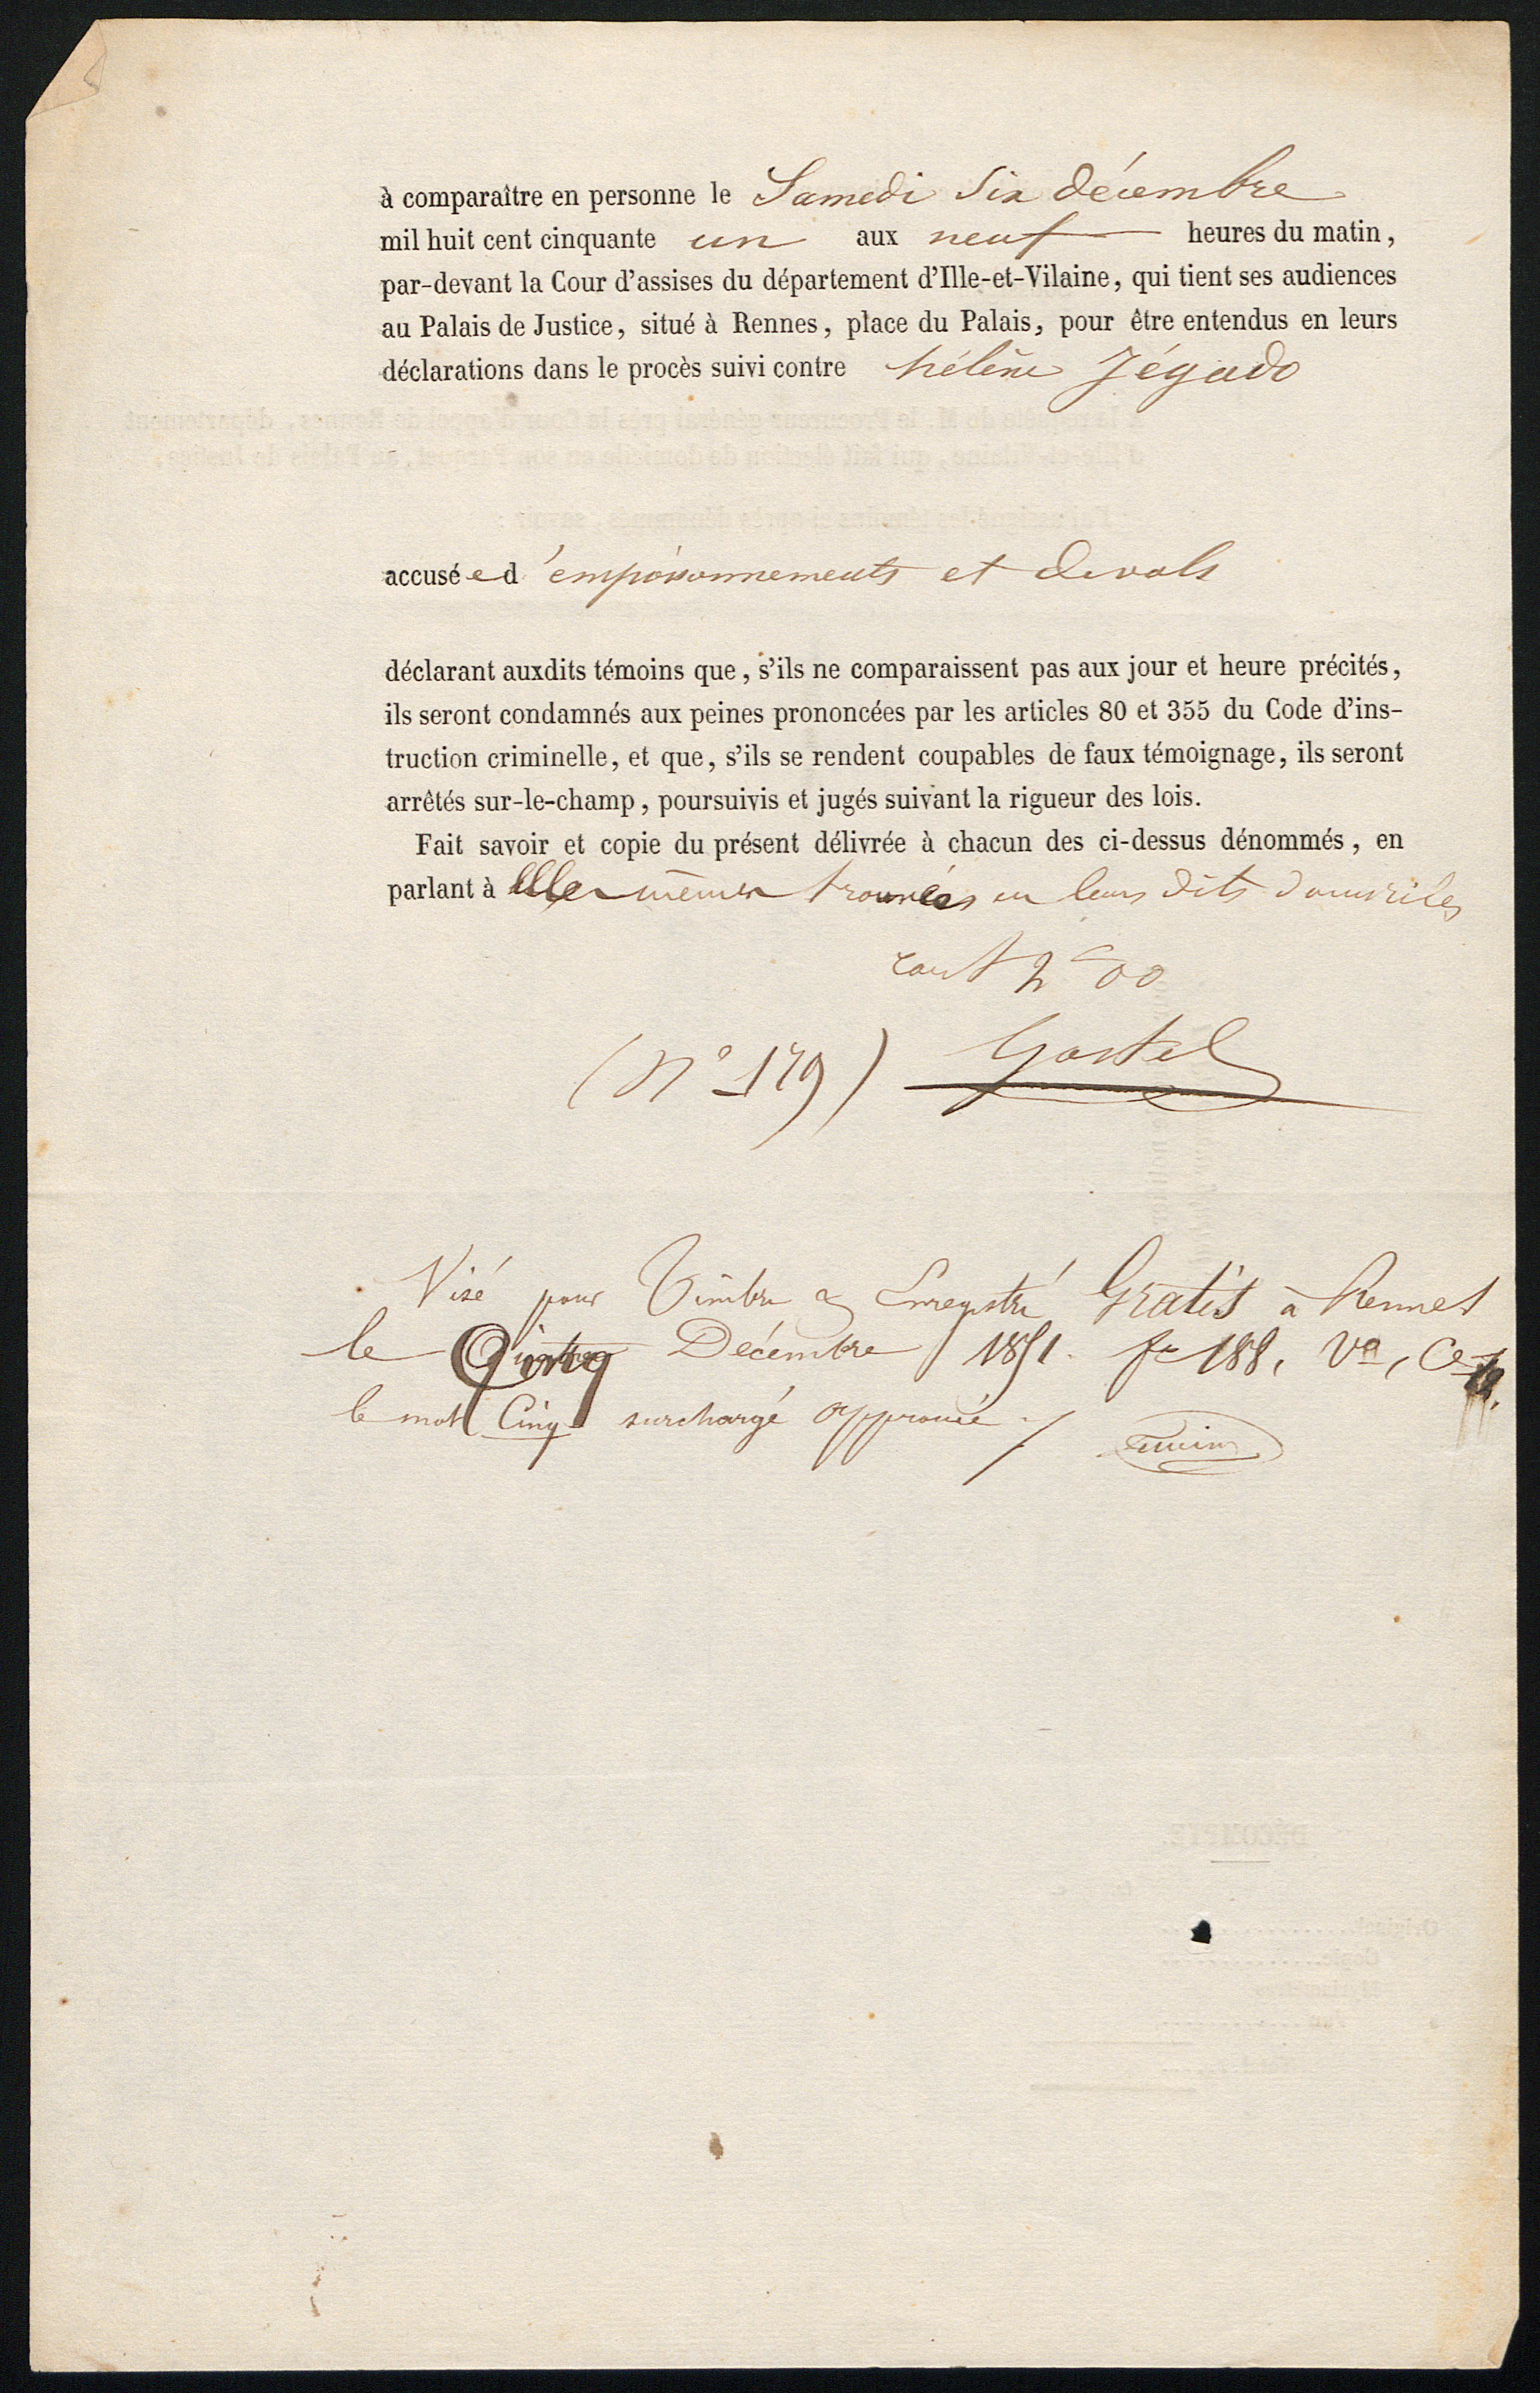 à comparaître en personne le Samedi Six décembre
mil huit cent cinquante un aux neuf heures du matin,
par-devant la Cour d'assises du département d'Ille-et-Vilaine, qui tient ses audiences
au Palais de Justice, situé à Rennes, place du Palais, pour être entendus en leurs
déclarations dans le procès suivi contre hélène Jégado
accusée d'empoisonnements et de vols
déclarant auxdits témoins que, s'ils ne comparaissent pas aux jour et heure précités,
ils seront condamnés aux peines prononcées par les articles 80 et 355 du Code d'ins-
truction criminelle, et que, s'ils se rendent coupables de faux témoignage, ils seront
arrêtés sur-le-champ, poursuivis et jugés suivant la rigueur des lois.
Fait savoir et copie du présent délivrée à chacun des ci-dessus dénommés, en
parlant à Elles mêmes trouvées en leurs dits domiciles
(N° 179) Gastel
Visé pour Timbre & Enregistré Gratis à Rennes
le Cinq Décembre 1851. f° 188, V°, Ce
le mot Cinq surchargé approuvé ./